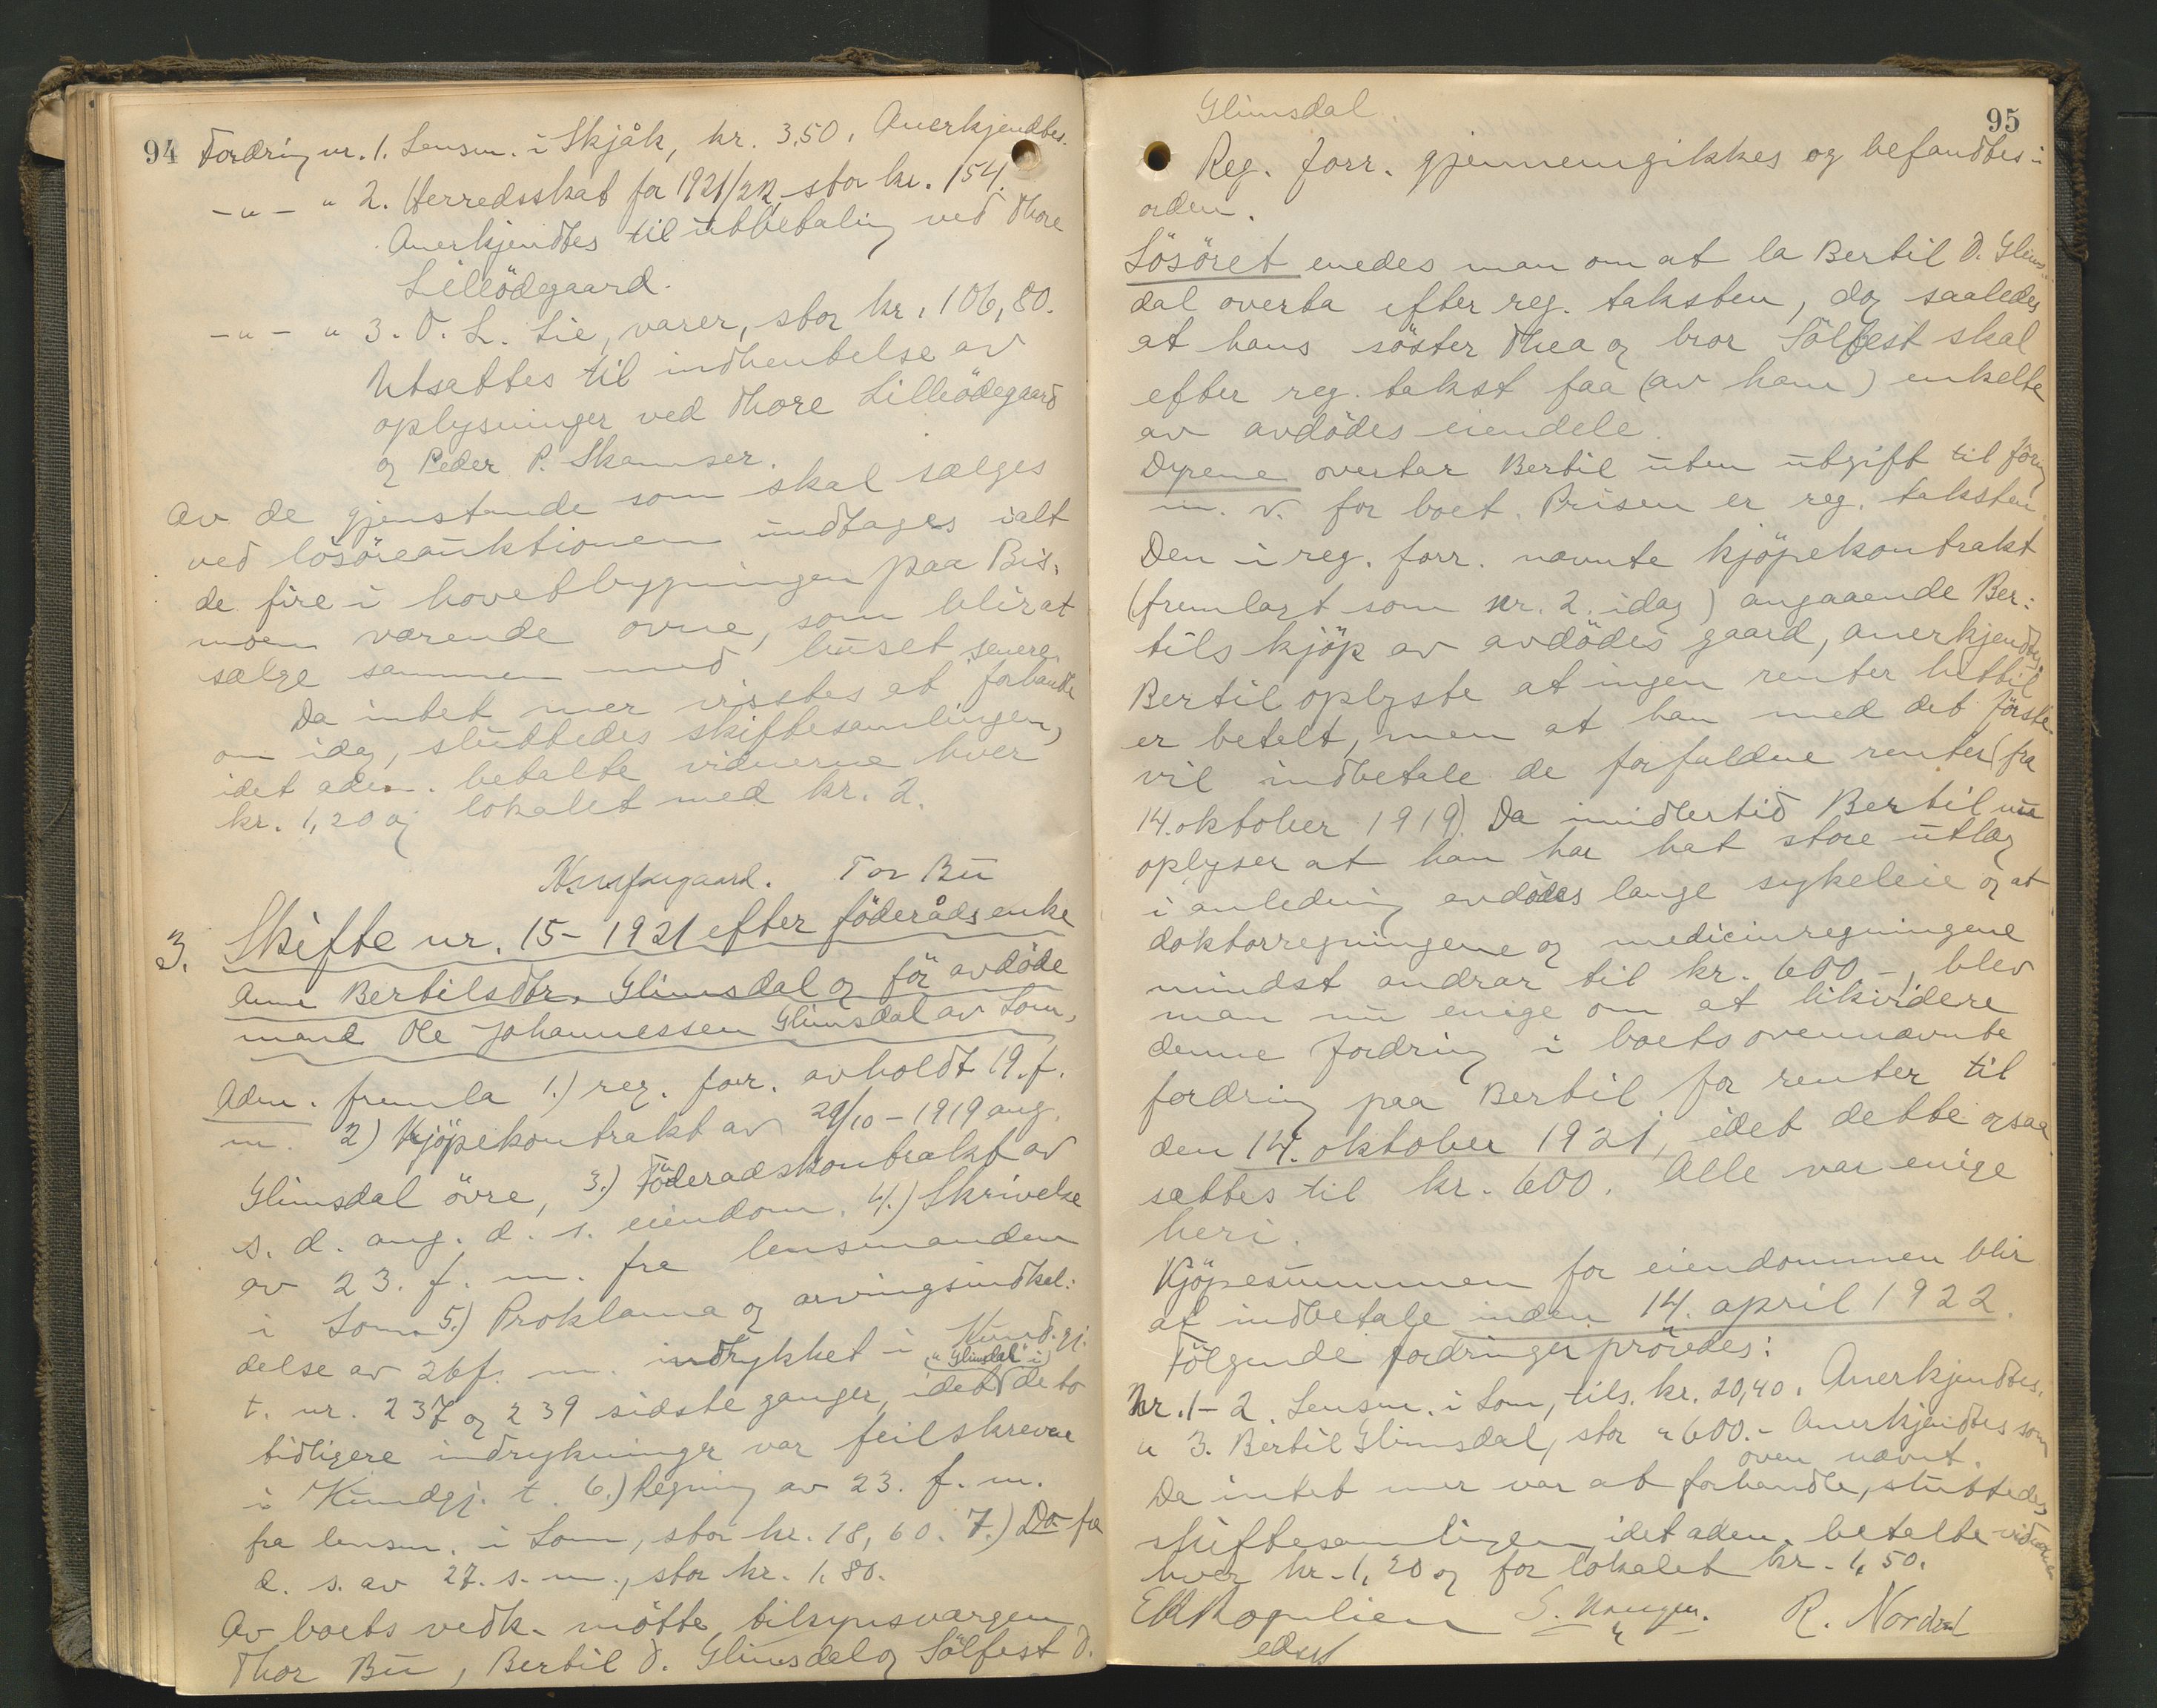 94 Fordring nr. 1. Lensm. i Skjåk, kr. 3,50. Anerkjendtes.
-"- " 2. Herredsskat for 1921/22 stor kr. 154.
Anerkjendtes til utbetaling ved Thore
Lilleödegaard.
-"- " 3. O. L. Lie, varer, stor kr. 106,80.
Utsattes til indhentelse av
oplysninger ved Thore Lilleödegaard
og Peder P. Skamser.
Av de gjenstande som skal sælges
ved lösöreauktionen undtages ialt
de fire i hovedbygningen paa Bis-
moen værende ovne, som blir at
sælge sammen med huset senere.
Da intet mer visstes at forhandle
om idag, sluttedes skiftesamlingen,
idet adm. betalte vidnerne hver
kr. 1,20 og lokalet med kr. 2.
Tor Bu
3. Skifte nr. 15 - 1921 efter föderådsenke
Anne Bertilsdtr. Glimsdal og för avdöde
mand Ole Johannessen Glimsdal av Lom.
Adm. fremla 1.) reg. forr. avholdt 19. f.
m. 2) Kjöpekontrakt av 29/10 - 1919 ang.
Glimsdal övre, 3.) Föderadskontrakt av
s. d. ang. d. s. eiendom. 4.) Skrivelse
av 23. f. m. fra lensmanden
i Lom. 5.) Proklama og arvingsindkal:
delse av 26 f. m. indrykket i Kundgj.
t. nr. 237 og 239 sidste ganger, idet ("Glimsdal" i) de to
tidligere indrykninger var feilskrevne
i Kundgj. t. 6.) Regning av 23. f. m.
fra lensm. i Lom, stor kr. 18,60. 7.) Do fra
d. s. av 27. s. m., stor kr. 1,80.
Av boets vedk. mötte tilsynsvargen
Thor Bu, Bertil O. Glimsdal og Sölfest O.
Glimsdal.
95
Reg. forr. gjennemgikkes og befandtes i
orden.
Lösöret enedes man om at la Bertil O. Glims-
dal overta efter reg. taksten, dog saaledes
at hans söster Thea og bror Sölfest skal
efter reg. takst faa (av ham) enkelte
av avdödes eiendele.
Dyrene overtar Bertil uten utgift til foring
m. v. for boet. Prisen er reg. taksten.
Den i reg. forr. nævnte kjöpekontrakt
(fremlagt som nr. 2. idag) angaaende Ber:
tils kjöp av avdödes gaard, anerkjendtes.
Bertil oplyste at ingen renter hittil
er betalt, men at han med det förste
vil indbetale de forfaldne renter (fra
14. oktober 1919). Da imidlertid Bertil nu
oplyser at han har hat store utlæg
i anledning avdödes lange sykeleie og at
doktorregningene og medicinregningene
mindst andrar til kr. 600.-, blev
man nu enige om at likvidere
denne fordring i boets ovennævnte
fordring paa Bertil for renter til
den 14. oktober 1921, idet dette ogsaa
sættes til kr. 600. Alle var enige
heri.
Kjöpesummen for eiendommen blir
at indbetale inden 14. april 1922.
Fölgende fordringer prövedes:
Nr. 1-2. Lensm. i Lom, tils. kr. 20,40. Anerkjendtes.
" 3. Bertil Glimsdal, stor " 600.- Anerkjendtes som
oven nævnt.
Da intet mer var at forhandle, sluttedes
skiftesamlingen, idet adm. betalte vidnerne
hver kr. 1,20 og for lokalet kr. 1,50.
R. Nordal
edsv